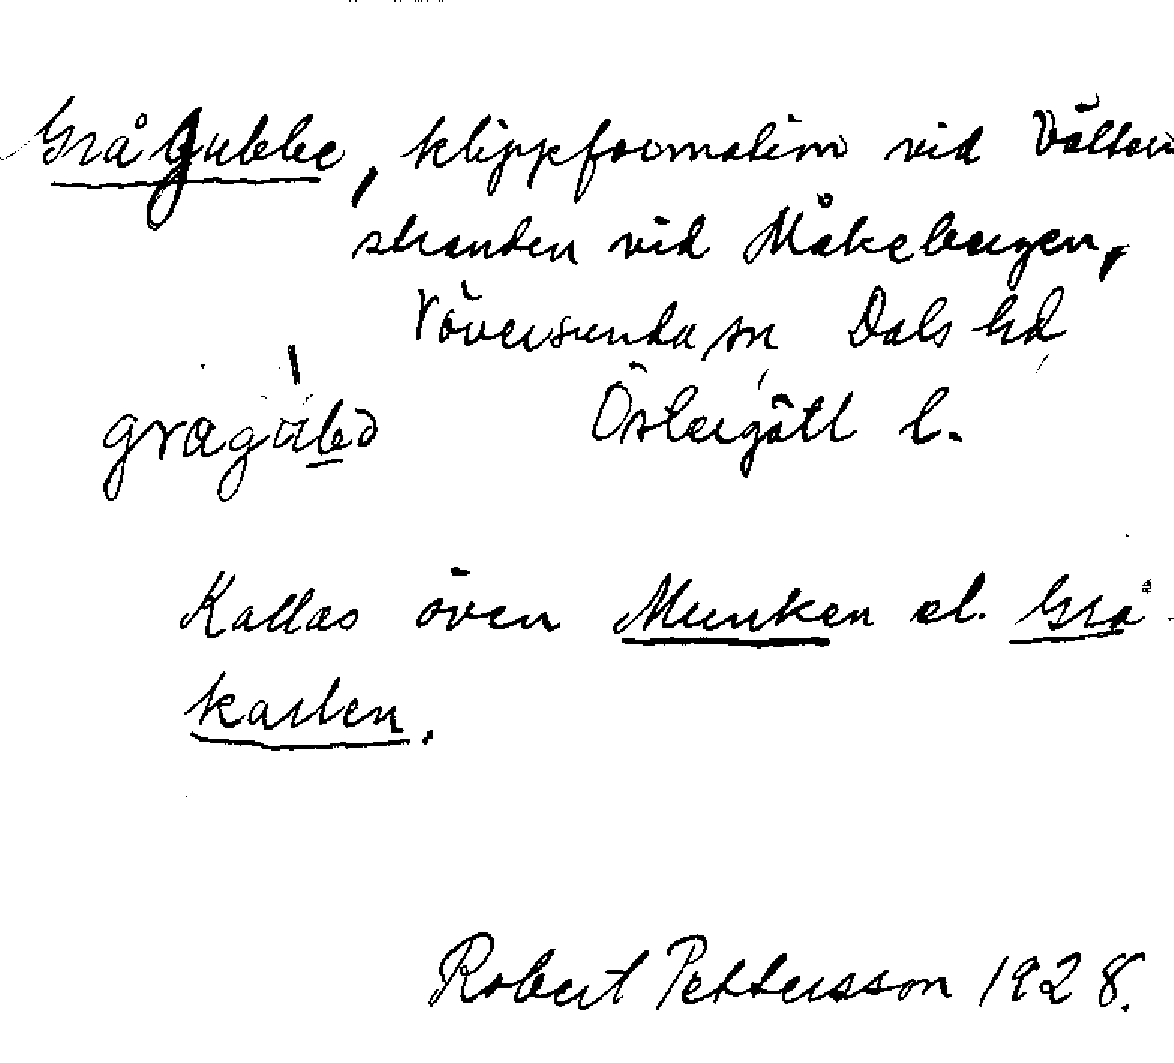 Grå Gubbe, klippformation vid Vätter
stranden vid Måkebergen,
Väversunda sn Dals hd
Östergötl l.
Kallas även Munken el. Grå
karlen.
Robert Pettersson 1928.